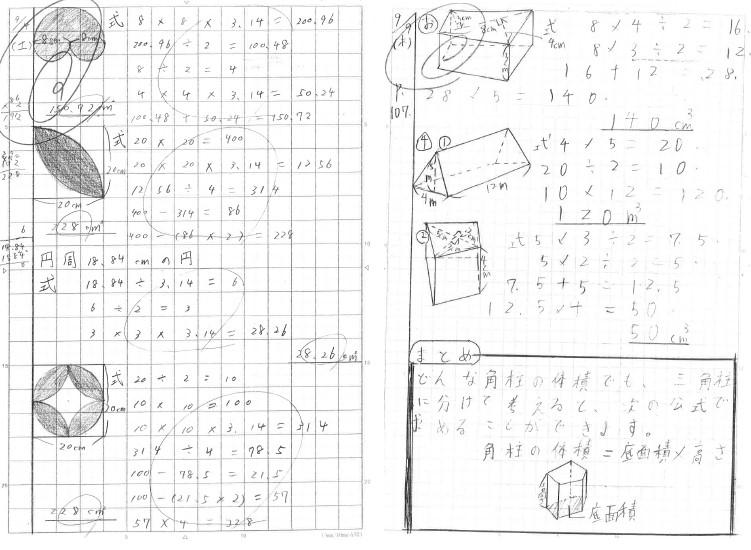 9/
(土)
8cm 8cm
式 8 × 8 × 3.14 = 200.96
200.96 ÷ 2 = 100.48
8 ÷ 2 = 4
4 × 4 × 3.14 = 50.24
100.48 + 50.24 = 150.72
式 20 × 20 = 400
20 × 20 × 3.14 = 1256
1256 ÷ 4 = 314
400 - 314 = 86
400 - (86 × 2) = 228
20cm
20cm
228 cm²
円周 18.84 cm の円
式 18.84 ÷ 3.14 = 6
6 ÷ 2 = 3
3 × 3 × 3.14 = 28.26
28.26 cm²
式 20 ÷ 2 = 10
10 × 10 = 100
10 × 10 × 3.14 = 314
314 ÷ 4 = 78.5
100 - 78.5 = 21.5
100 - (21.5 × 2) = 57
57 × 4 = 228
20cm
20cm
228 cm²
9/
(木)
お
3cm
8cm
4cm
式 8 × 4 ÷ 2 = 16.
8 × 3 ÷ 2 = 12.
16 + 12 = 28.
28 × 5 = 140.
140 cm³
P.
107.
④ ①
4m
12m
式 4 × 5 = 20.
20 ÷ 2 = 10.
10 × 12 = 120.
120 m³
②
式 5 × 3 ÷ 2 = 7.5.
5 × 2 ÷ 2 = 5.
7.5 + 5 = 12.5
12.5 × 4 = 50.
50 cm³
まとめ
どんな角柱の体積でも、三角柱
に分けて考えると、次の公式で
求めることができます。
角柱の体積 = 底面積 × 高さ
底面積